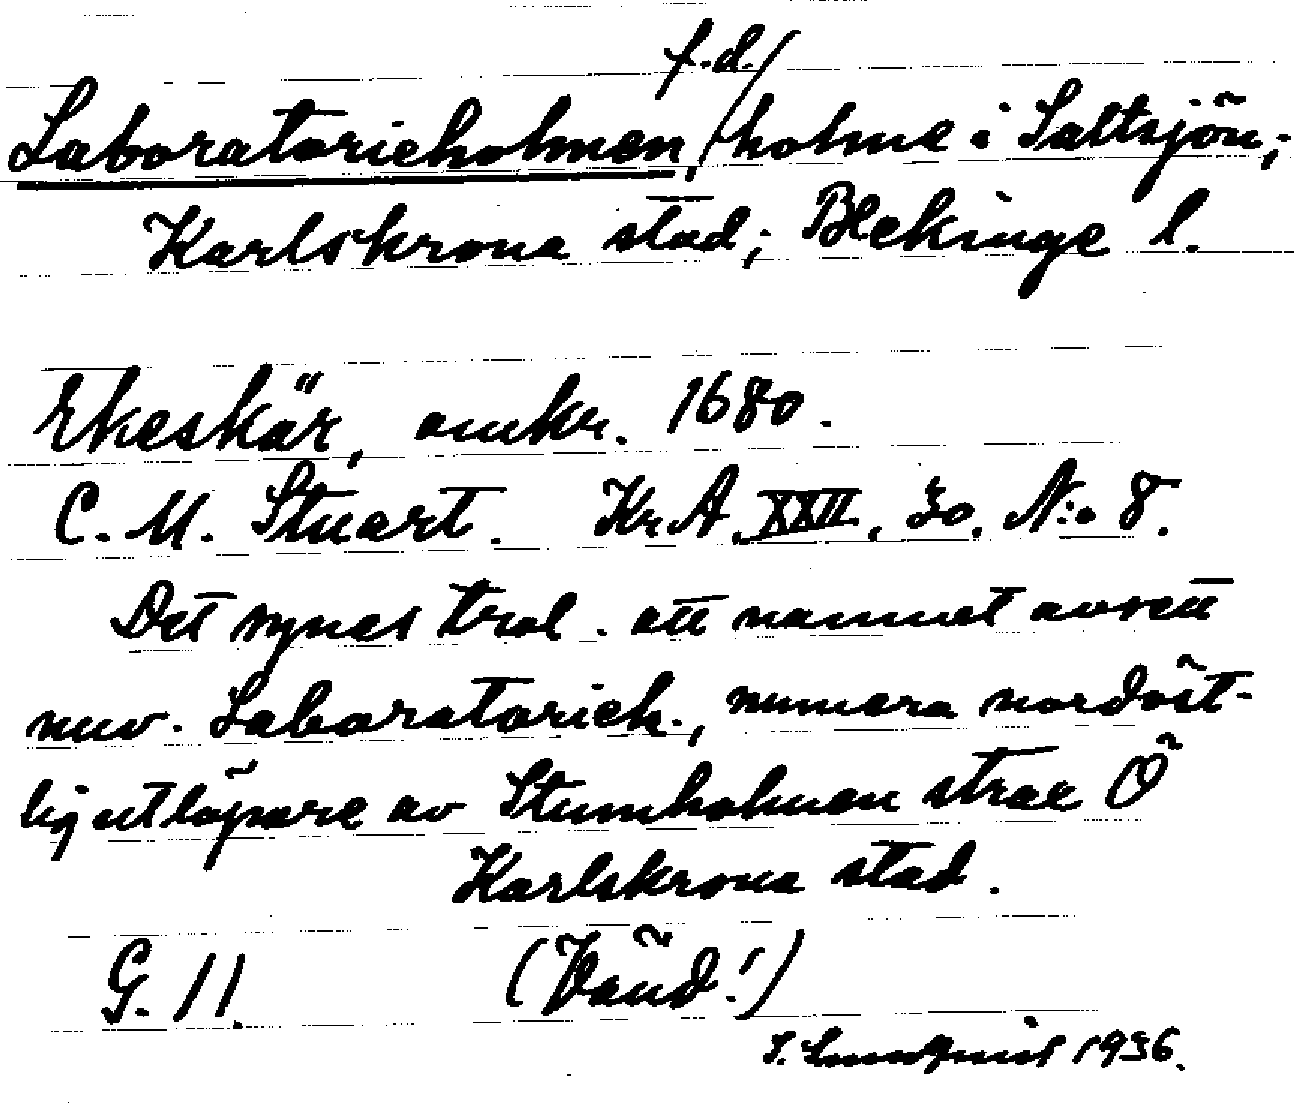 Laboratorieholmen, f.d./ holme i Saltsjön;
Karlskrona stad; Blekinge l.
Ekeskär, omkr. 1680.
C. M. Stuart. Kr.A. XXII, 30. N:o 8.
Det synes trol. att namnet avsett
nuv. Laboratorieh., numera nordöst-
lig utlöpare av Stumholmen strax Ö
Karlskrona stad.
G. 11. (Vänd!)
S. Lundqvist 1936.